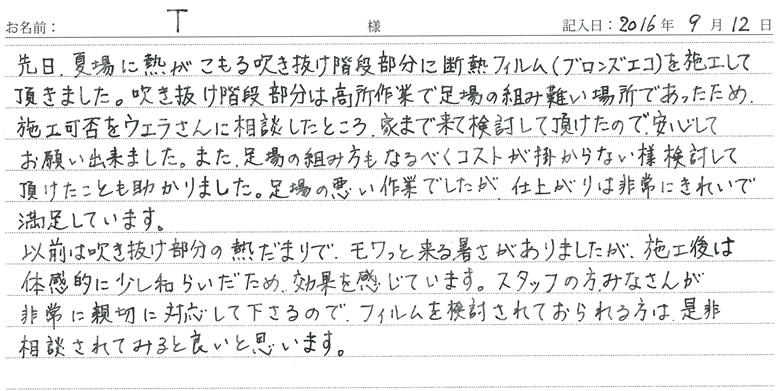 お名前： T 様 記入日：2016年 9月 12日
先日、夏場に熱がこもる吹き抜け階段部分に断熱フィルム(ブロンズエコ)を施工して
頂きました。吹き抜け階段部分は高所作業で足場の組み難い場所であったため、
施工可否をウエラさんに相談したところ、家まで来て検討して頂けたので、安心して
お願い出来ました。また、足場の組み方もなるべくコストが掛からない様検討して
頂けたことも助かりました。足場の悪い作業でしたが、仕上がりは非常にきれいで
満足しています。
以前は吹き抜け部分の熱だまりで、モワっと来る暑さがありましたが、施工後は
体感的に少し和らいだため、効果を感じています。スタッフの方みなさんが
非常に親切に対応して下さるので、フィルムを検討されておられる方は、是非
相談されてみると良いと思います。